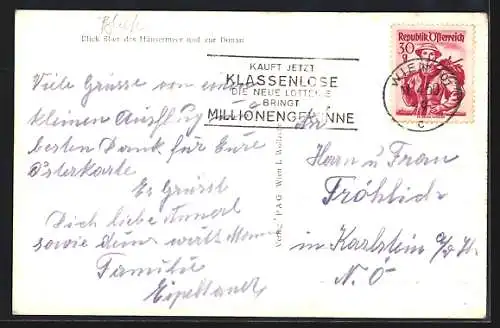 Blick über das Häusermeer und zur Donau
KAUFT JETZT
KLASSENLOSE
DIE NEUE LOTTERIE
BRINGT
MILLIONENGEWINNE
Republik Österreich
30
WIEN
Viele Grüsse von einem
kleinen Ausflug u.
besten Dank für Eure
Osterkarte
Es Grüsst
Dich liebe Annerl
sowie dein
Familie
An
Herrn u Frau
Fröhlich
in Karlstein a/d Th.
N. Ö
Verlag P A G Wien I.